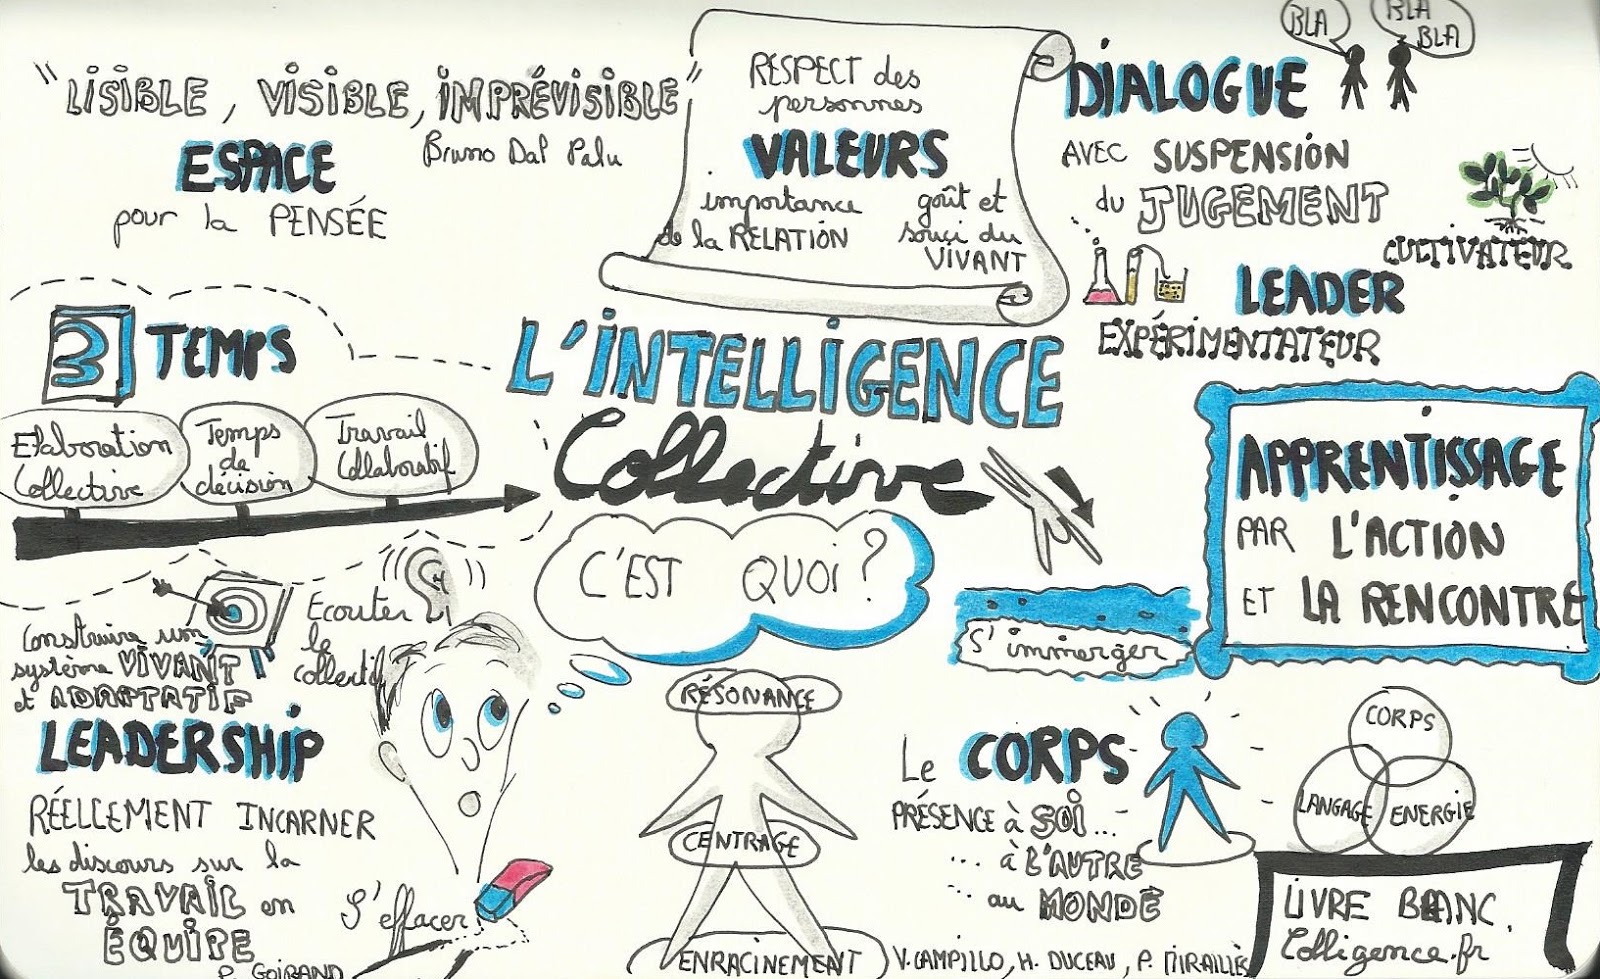 "LISIBLE, VISIBLE, IMPRÉVISIBLE"
Bruno Dal Palu
ESPACE
pour la PENSÉE
RESPECT des
personnes
VALEURS
importance
de la RELATION
goût et
souci du
VIVANT
BLA
BLA
BLA
DIALOGUE
AVEC SUSPENSION
du JUGEMENT
CULTIVATEUR
LEADER
EXPÉRIMENTATEUR
3 TEMPS
Elaboration
Collective
Temps
de
décision
Travail
Collaboratif
L'INTELLIGENCE
Collective
C'EST QUOI ?
APPRENTISSAGE
PAR L'ACTION
ET LA RENCONTRE
S'immerger
Construire un
système VIVANT
et ADAPTATIF
Ecouter
le
collectif
LEADERSHIP
RÉELLEMENT INCARNER
les discours sur la
TRAVAIL en
ÉQUIPE
P. GOIRAND
S'effacer
RÉSONANCE
CENTRAGE
ENRACINEMENT
Le CORPS
PRÉSENCE à SOI...
... à L'AUTRE
... au MONDE
V. CAMPILLO, H. DUCEAU, P. MIRAILLÈS
CORPS
LANGAGE
ENERGIE
LIVRE BLANC.
Colligence.fr